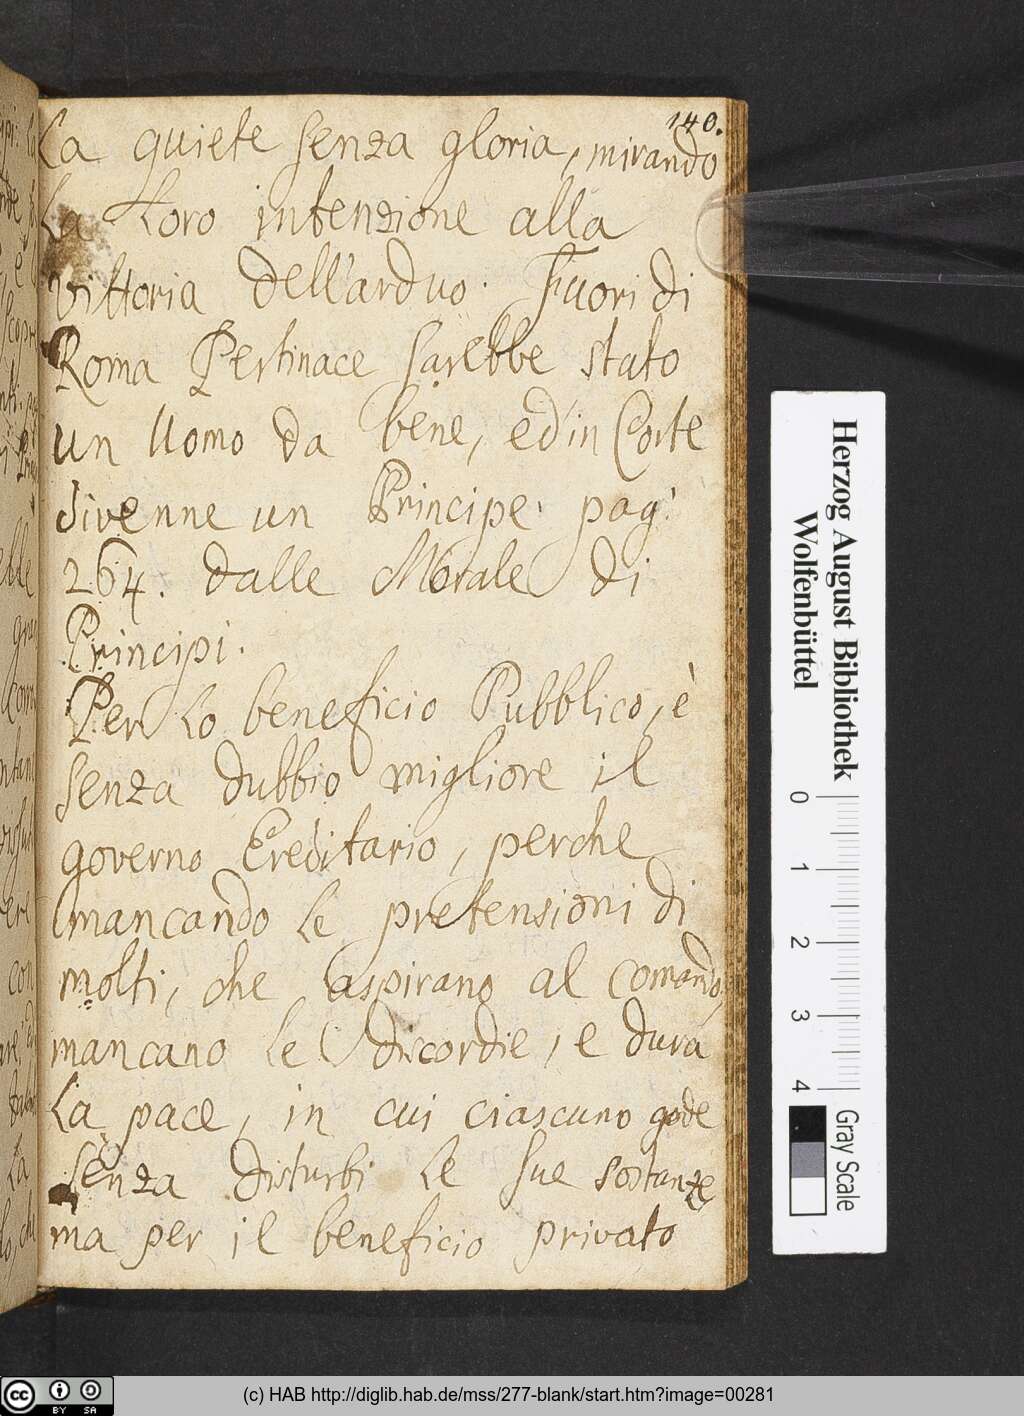 140.
La quiete senza gloria, mirando
La Loro intenzione alla
vittoria dell'arduo. Fuori di
Roma Pertinace sarebbe stato
un Uomo da bene, ed'in Corte
divenne un Principe. pag:
264. dalle Morale di
Principi.
Per Lo beneficio Pubblico, è
senza dubbio migliore il
governo Ereditario, perche
mancando le pretensioni di
molti, che aspirano al Comando,
mancano le discordie, e dura
La pace, in cui ciascuno gode
senza disturbi le sue sostanze
ma per il beneficio privato
Herzog August Bibliothek
Wolfenbüttel
0 1 2 3 4
Gray Scale
cc BY SA
(c) HAB http://diglib.hab.de/mss/277-blank/start.htm?image=00281